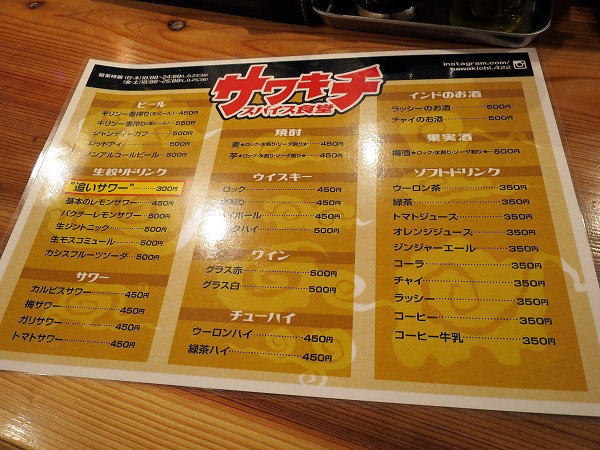 サワキチ
スパイス食堂
instagram.com/
sawakichi.422
ビール
キリン一番搾り(生ビール) 450円
キリン一番搾り 500円
シャンディーガフ 500円
レッドアイ 500円
ノンアルコールビール 500円
生絞りドリンク
"追いサワー" 300円
基本のレモンサワー 450円
パクチーレモンサワー 500円
生ジントニック 500円
生モスコミュール 500円
カシスフルーツソーダ 500円
サワー
カルピスサワー 450円
梅サワー 450円
ガリサワー 450円
トマトサワー 450円
焼酎
麦★ロック・水割り・ソーダ割り★ 450円
芋★ロック・水割り・ソーダ割り★ 450円
ウイスキー
ロック 450円
水割り 450円
ハイボール 450円
クハイ 500円
ワイン
グラス赤 500円
グラス白 500円
チューハイ
ウーロンハイ 450円
緑茶ハイ 450円
インドのお酒
ラッシーのお酒 500円
チャイのお酒 500円
果実酒
梅酒★ロック・水割り・ソーダ割り★ 500円
ソフトドリンク
ウーロン茶 350円
緑茶 350円
トマトジュース 350円
オレンジジュース 350円
ジンジャーエール 350円
コーラ 350円
チャイ 350円
ラッシー 350円
コーヒー 350円
コーヒー牛乳 350円